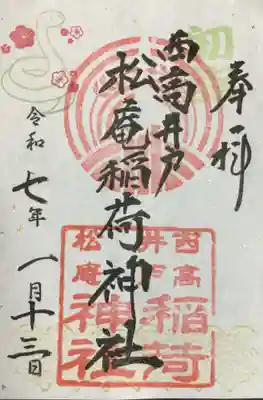 奉拝
初
西高井戸
松庵稲荷神社
令和七年一月十三日
西高
井戸
稲荷
松庵
神社